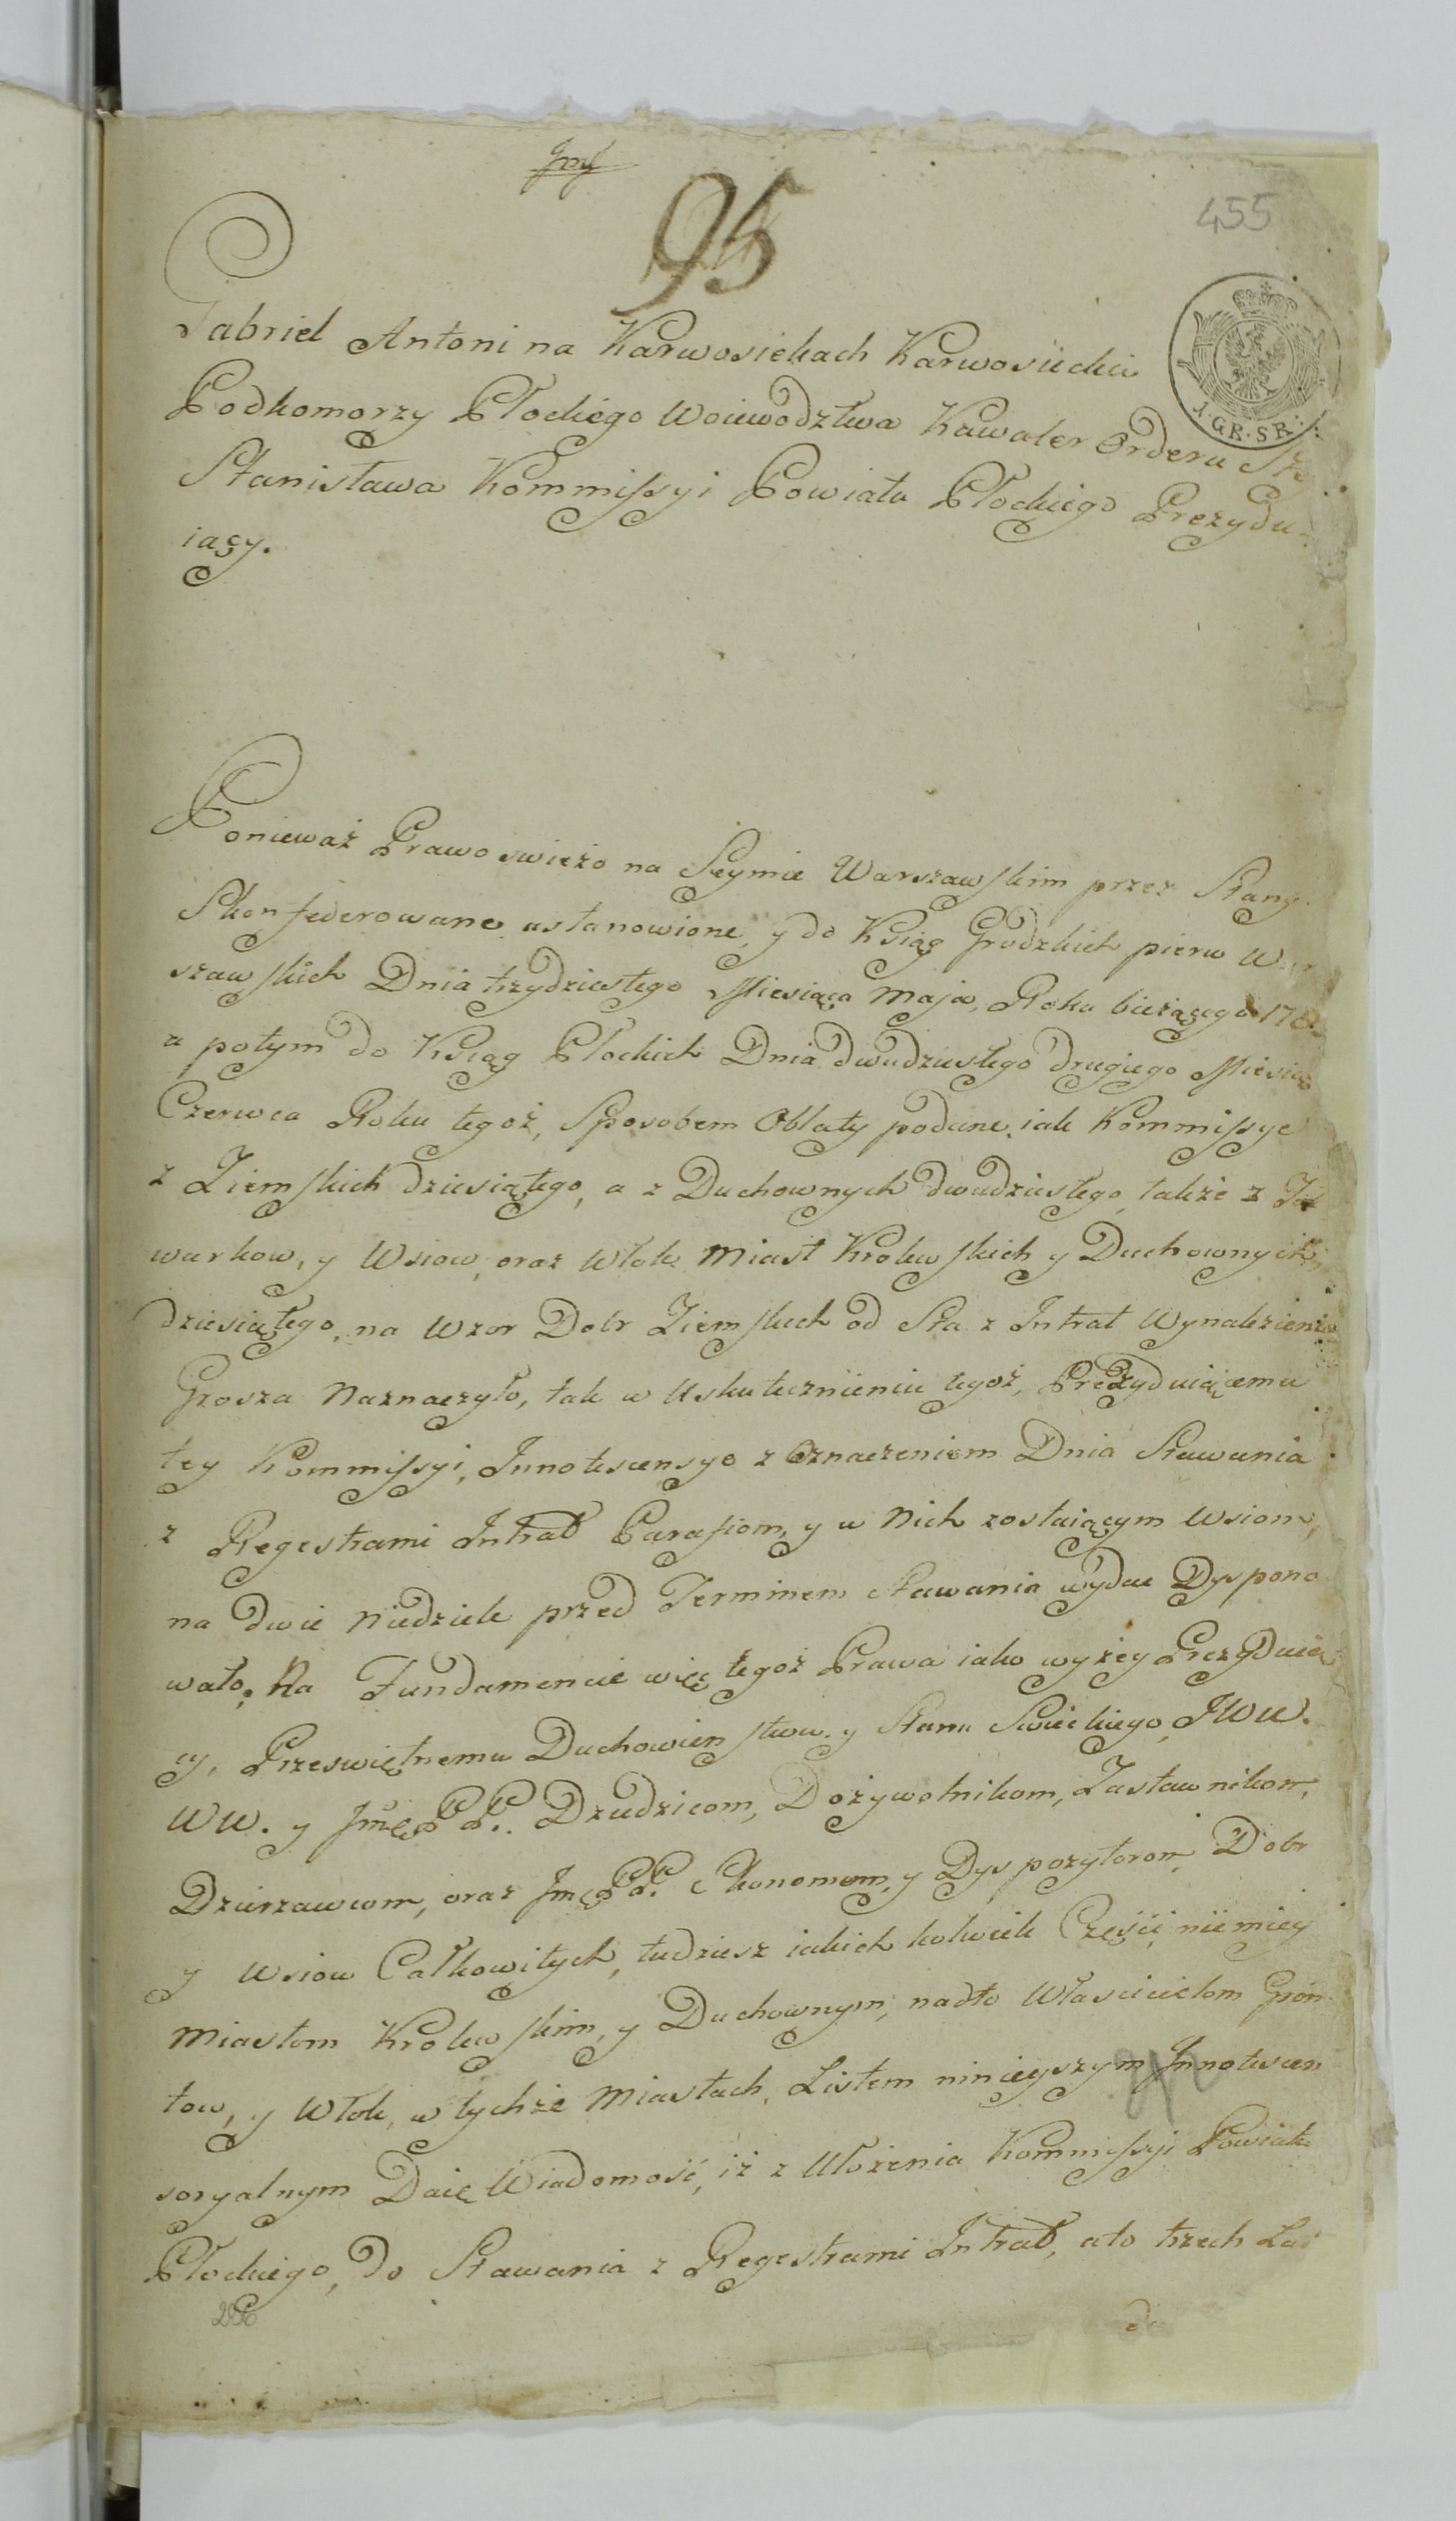 95
455
1·GR·SR·
Gabriel Antoni na Karwosiekach Karwosiecki
Podkomorzy Płockiego Woiewodztwa Kawaler Orderu Stgo
Stanisława Kommissyi Powiatu Płockiego Prezydu-
iący.
Ponieważ Prawo swieżo na Seymie Warszawskim przez Stany
Skonfederowane ustanowione, y do Ksiąg Grodzkich pierw War
szawskich Dnia trzydziestego Miesiąca Maja, Roku bieżącego
a potym do Ksiąg Płockich Dnia dwudziestego drugiego Miesiąca
Czerwca Roku tegoż, Sposobem Oblaty podane, iak Kommissye
z Ziemskich dziesiątego, a z Duchownych dwudziestego, także z Fol
warkow, y Wsiow, oraz Włok Miast Krolewskich y Duchownych
dziesiątego, na wzor Dobr Ziemskich od Sta z Intrat Wynalezienie
Grosza Naznaczyło, tak w Uskutecznieniu tegoż, Prezyduiącemu
tey Kommissyi, Innotescensye z Oznaczeniem Dnia Stawania
z Regestrami Intrat Parafiom, y w Nich zostaiącym Wsiom,
na dwie Niedziele przed Terminem Stawania wydac Dyspono
wało, Na Fundamencie więc tegoż Prawa iako wyżey Prezyduią
cy, Przeswiętnemu Duchowienstwu y Stanu Swieckiego, JWW.
WW. y Jmć PP. Dziedzicom, Dożywotnikom, Zastawnikom,
Dzierzawcom, oraz Jmć PP. Ekonomom, y Dyspozytorom, Dobr
y Wsiow Całkowitych, tudziesz iakich kolwiek Części, niemiey
Miastom Krolewskim, y Duchownym, nadto Własicielom Grun
tow, y Włok, w tychże Miastach, Listem ninieyszym Innotescen
soryalnym Daię Wiadomość, iż z Ułożenia Kommissyi Powiatu
Płockiego, do Stawania z Regestrami Intrat, ato trzech Lat